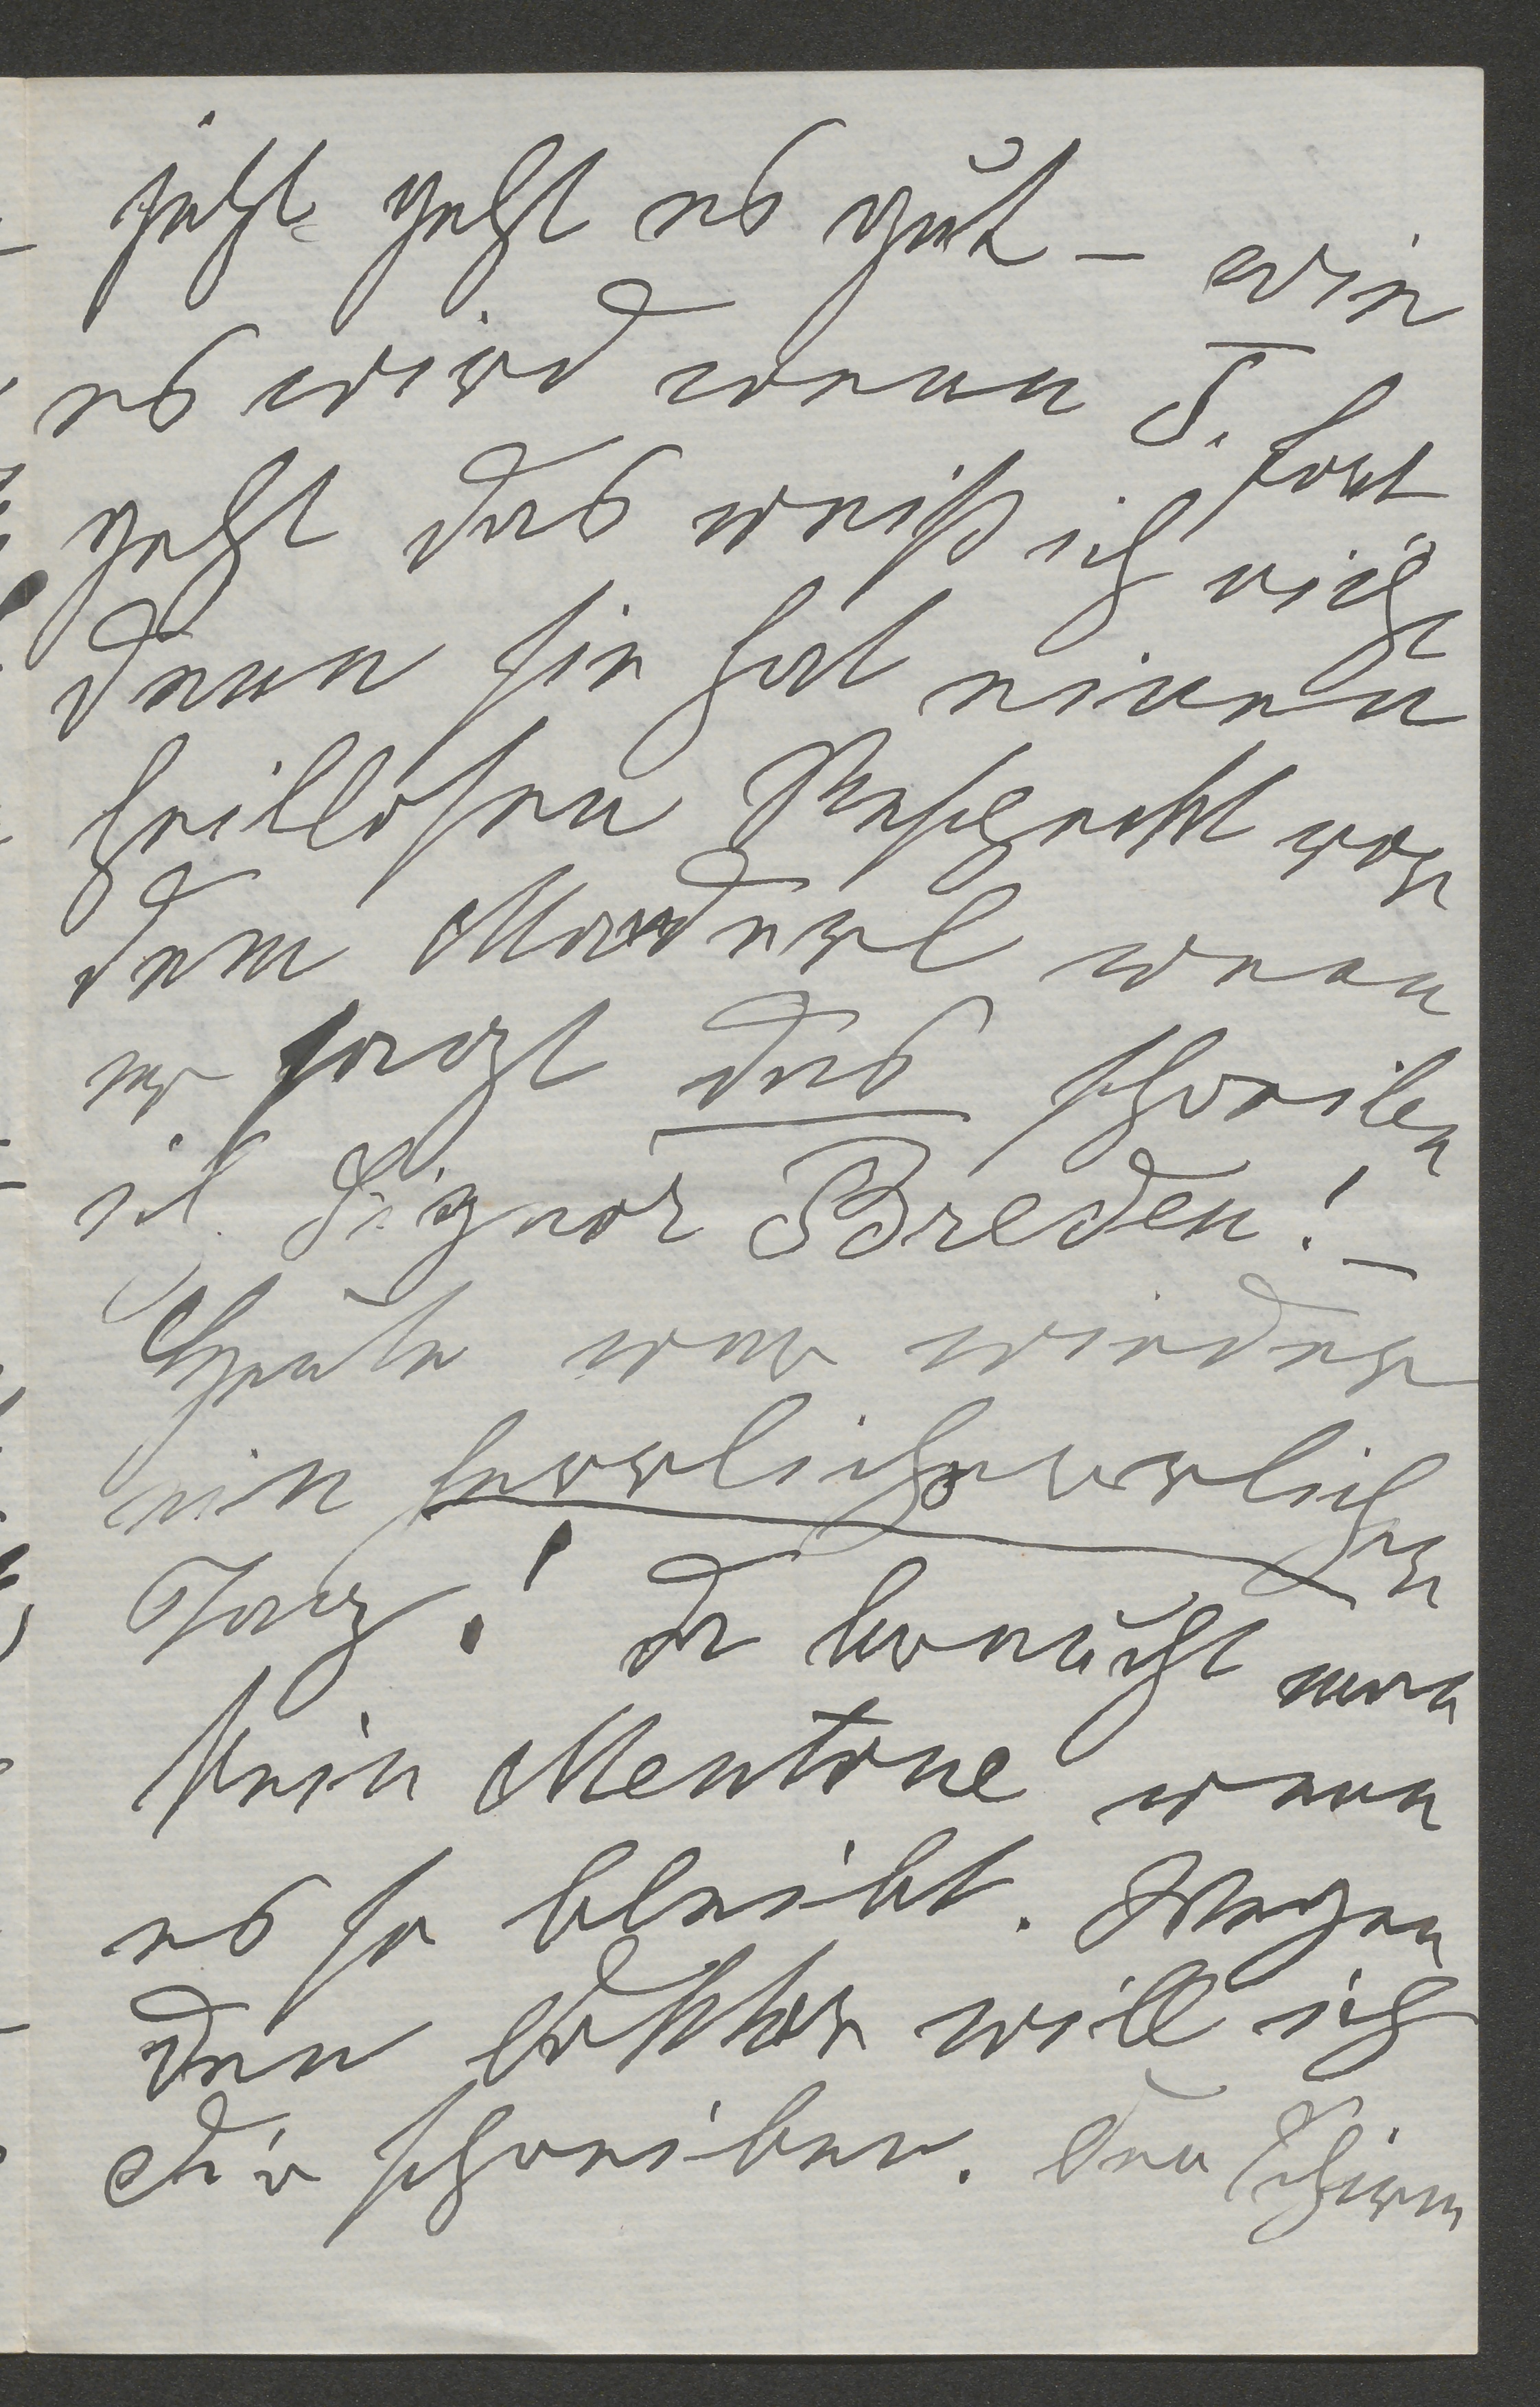 jetzt geht es gut – wie
es wird wenn T. fort
geht das weiß ich nicht
denn sie hat einen
heillosen Respeckt vor
dem Manderl wenn
er sagt das schreiben
il Signor Breden! –
Heute war wieder
ein herrlicherrlicher
Tag! da braucht man
kein Mentone wenn
es so bleibt. Wegen
den Doktor will ich
Dir schreiben. Den Schirm